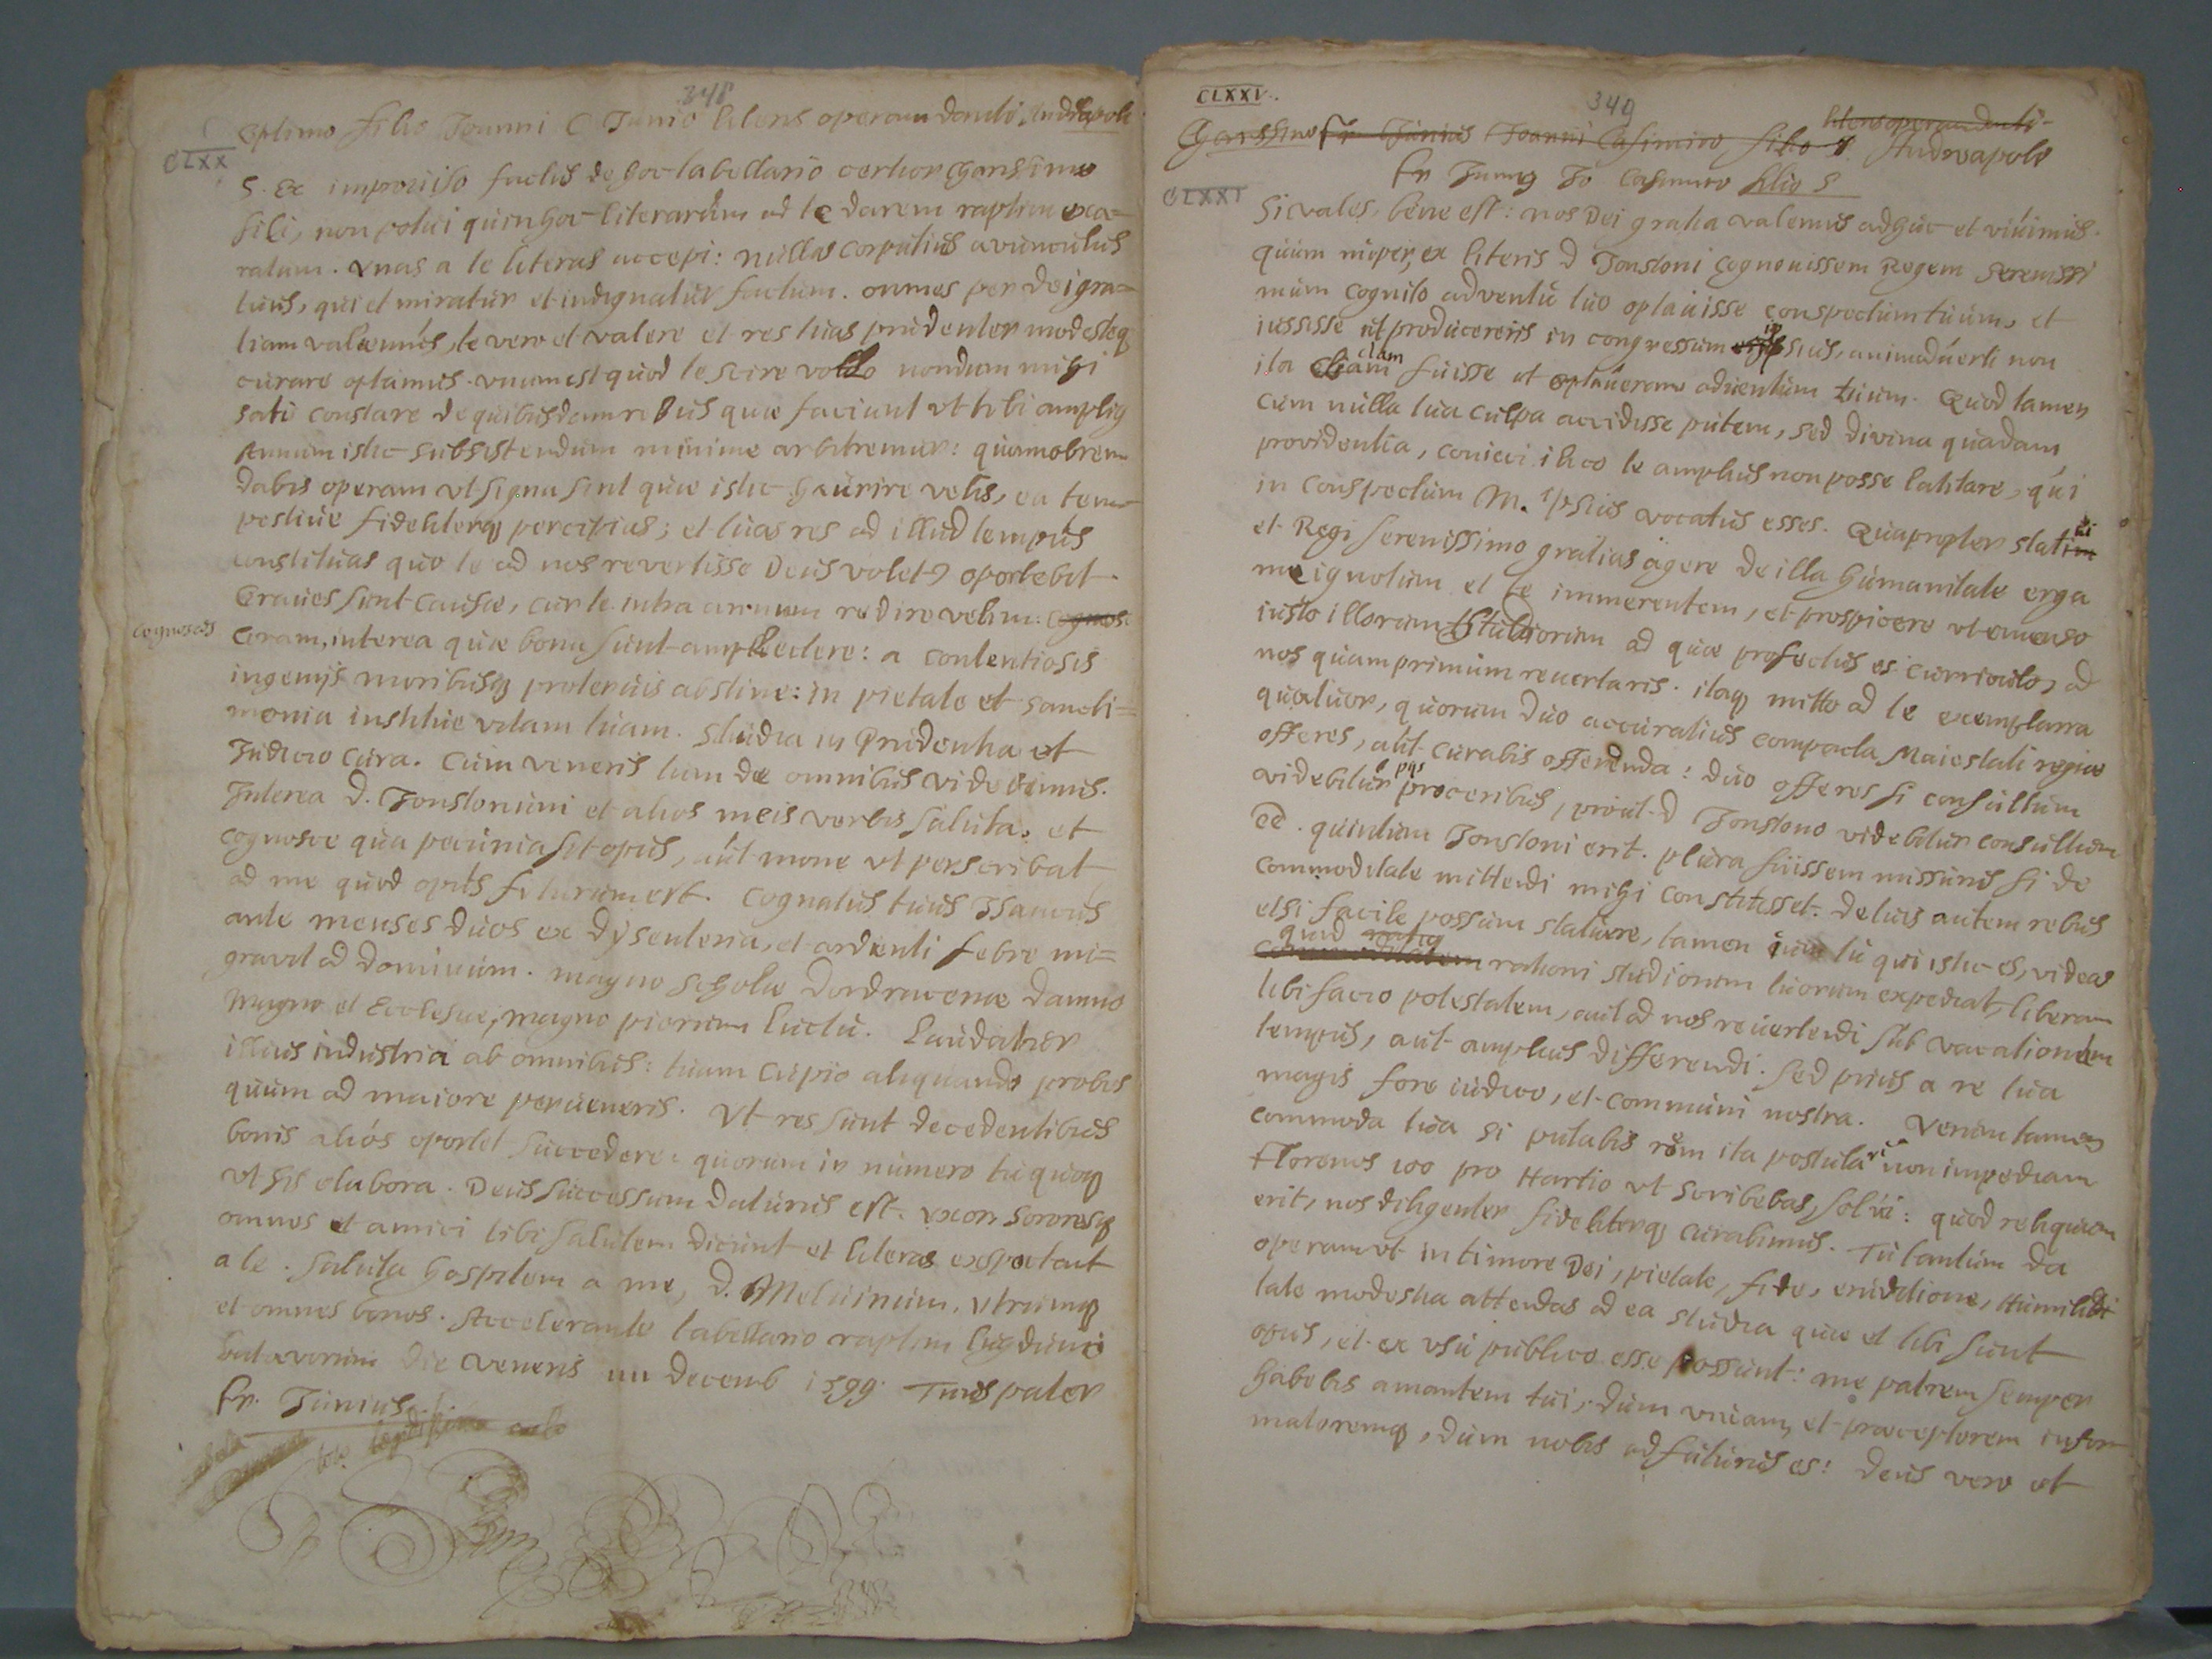 348
Optimo filio Joanni C Junio literis operam danti Andrapoli
CLXX
S. Ex improviso factus de hoc tabellario certior charissime
fili, non potui quin hoc literarum ad te darem raptim exa=
ratum. Unas a te literas accepi: nullas Corputius avunculus
tuus, qui et miratur et indignatur factum. omnes per dei gra=
tiam valemus, te vero et valere et res tuas prudenter modesteq
curare optamus. unum est quod te scire volo nondum mihi
satis constare de quibusdam rebus quae faciunt ut tibi amplius
Annum istic subsistendum minime arbitremur: quamobrem
dabis operam ut signa sint quae istic haurire velis, ea tem
pestive fideliterq percipias; et tuas res ad illud tempus
constituas quo te ad nos revertisse Deus volet oportebit.
Graves sunt causae, cur te intra annum redire velim: cognos
cognosces
Coram, interea quae bona sunt amplectere: a contentiosis
ingenijs moribusq protervis abstine: in pietate et sancti=
monia institue vitam tuam. Studia in Prudentia et
Judicio cura. Cum veneris tum de omnibus videbimus.
Interea D. Jonstonum et alios meis verbis saluta, et
cognosce qua pecunia sit opus, aut mone ut perscribat
ad me quod opus futurum est. Cognatus tuus Isaacus
ante menses duos ex dysenteria, et ardenti febre mi=
gravit ad dominum. magno scholae Dordracenae damno
magno et Ecclesiae, magno piorum luctu. Laudatur
illius industria ab omnibus: tuam cupio aliquando probes
quum ad maiora perveneris. Ut res sunt decedentibus
bonis alios oportet succedere: quorum in numero tu quoq
ut sis elabora. Deus successum daturus est. uxor sororesq
omnes et amici tibi salutem dicunt et literas expectant
a te. Saluta hospitem a me, D. Melvinum utrumq
et omnes bonos. Accelerante tabellario raptim Lugduni
batavorum die veneris decemb 1599. Tuus pater
Fr. Junius.
CLXXI.
349
literis operam danti
Charissimo Fr Junius Joanni Casimiro filio S Andreapoli
Fr Junius Jo Casimiro filio S
CLXXI
Si vales, bene est: nos Dei gratia valemus adhuc et vivimus.
quum nuper, ex literis D Jonstoni cognovissem Regem Serenissi
mum cognito adventu tuo optavisse conspectum tuum, et
iussisse ut producereris in congressum ipsius, animadverti non
ita etiam clam fuisse ut optaveram adventum tuum. Quod tamen
cum nulla tua culpa accidisse putem, sed divina quadam
providentia, conieci ilico te amplius non posse latitare, qui
in conspectum M. ipsius vocatus esses. Quapropter statui
et Regi serenissimo gratias agere de illa humanitate erga
me ignotum et te immerentem, et prospicere ut emenso
iusto illorum studiorum ad quae profectus es curriculo, ad
nos quamprimum revertaris. itaq mitto ad te exemplaria
quatuor, quorum duo accuratius compacta Maiestati regiae
offeres, aut curabis offerenda: duo offeres si consultum
videbitur pijs proceribus, prout D Jonstono videbitur consultum
eē. quintum Jonstoni erit. plura fuissem missurus si de
commoditate mittendi mihi constitisset. De tuis autem rebus
etsi facile possum statuere, tamen cum tu qui istic es, videas
quod ratio
rationi studiorum tuorum expediat, liberam
tibi facio potestatem, aut ad nos revertendi sub vacationum
tempus, aut amplius differendi. Sed prius a re tua
magis fore iudico, et communi nostra. Veruntamen
commoda tua si putabis rem ita postulare non impediam
Florenos 100 pro Hartio ut scribebas, solvi: quod reliquum
erit, nos diligenter fideliterq curabimus. Tu tantum da
operam ut in timore Dei, pietate, fide, eruditione, humili
tate modestia attendas ad ea studia quae et tibi sunt
opus, et ex usu publico esse possunt: me patrem semper
habebis amantem tui, dum vivam, et praeceptorem infor
matoremq, dum nobis adfuturus es: Deus vero et